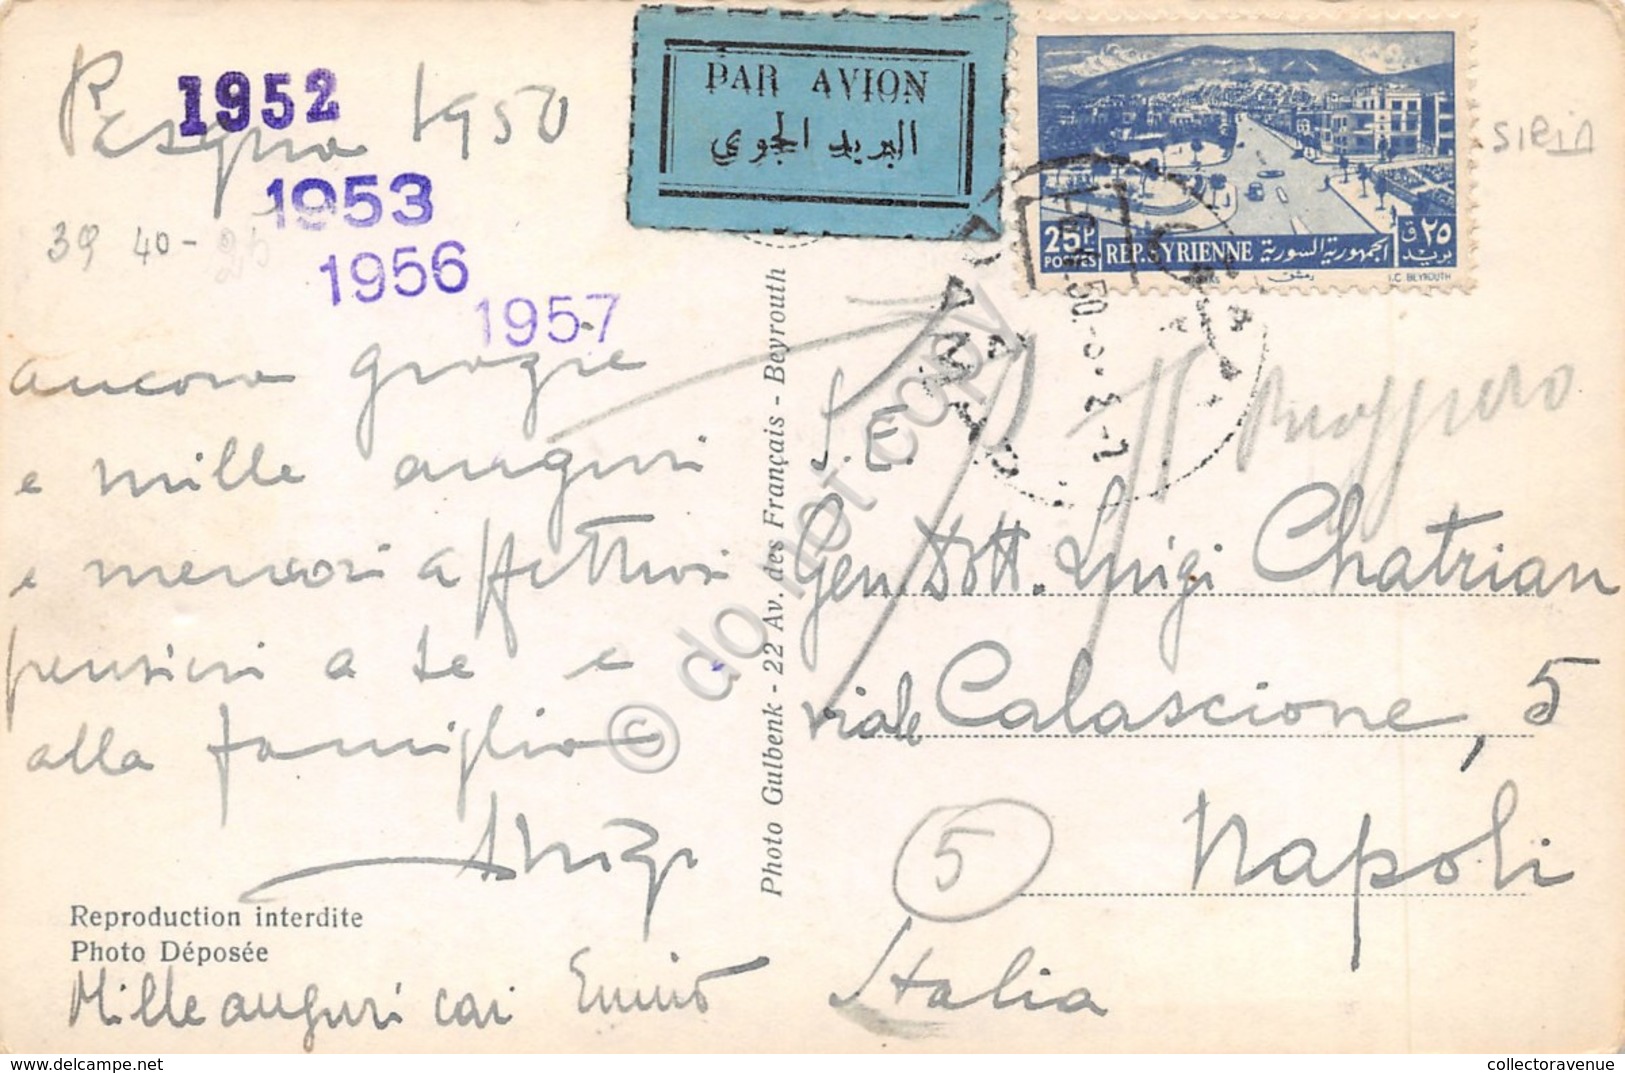 Pasqua 1950
1952
1953
1956
1957
39 40-25
ancora grazie
e mille auguri
e memori affettuosi
pensieri a te e
alla famiglia
Mille auguri cari
Reproduction interdite
Photo Déposée
Photo Gulbenk - 22 Av. des Français - Beyrouth
PAR AVION
البريد الجوي
25P
POSTES
REP. SYRIENNE الجمهورية السورية
ق ٢٥
بريد
دمشق
I.C. BEYROUTH
SIRIA
Ruggiero
S.E.
Gen Dott. Luigi Chatrian
viale Calascione, 5
5
Napoli
Italia
© do not copy
collectoravenue